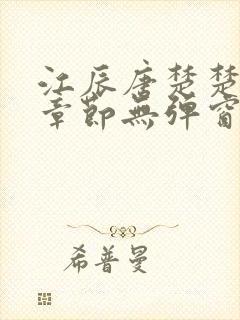 江辰唐楚楚
章節無彈窗
希普曼